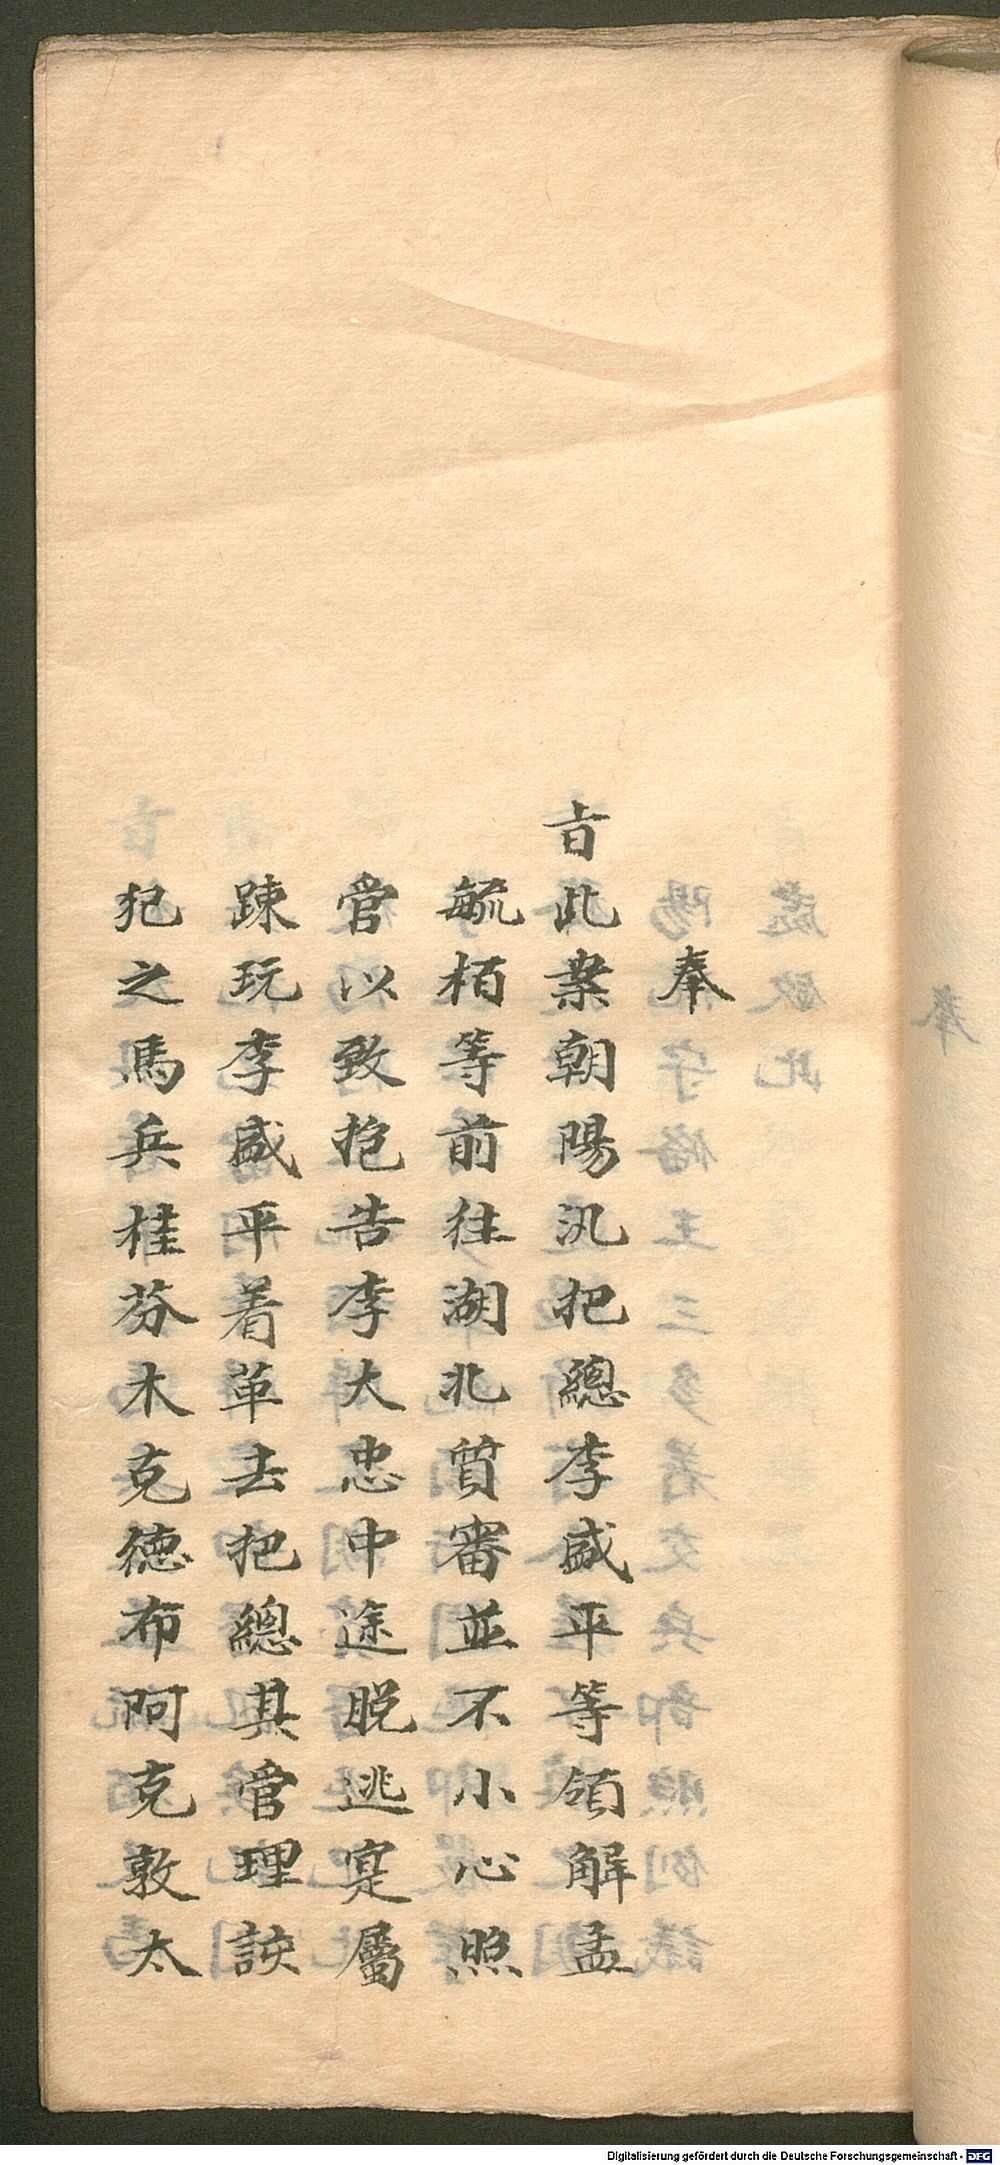 奉
旨此案朝陽汛把總李盛平等領解孟
毓栢等前往湖北質審並不小心照
管以致抱告李大忠中途脱逃寔屬
踈玩李盛平着革去把總其管理該
犯之馬兵桂芬木克德布阿克敦太
Digitalisierung gefördert durch die Deutsche Forschungsgemeinschaft - DFG